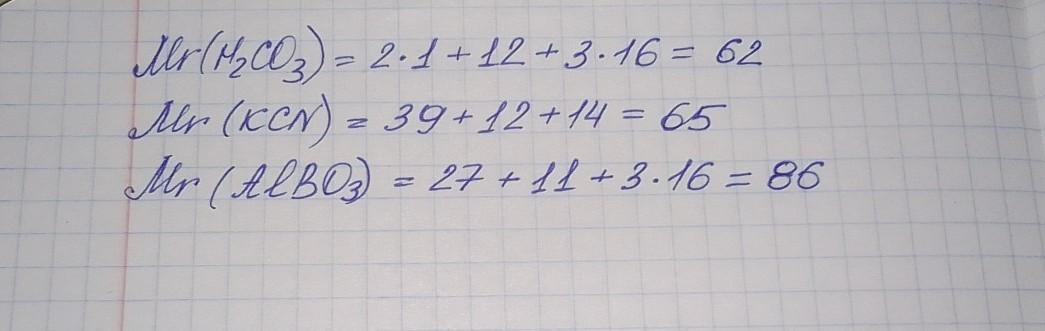 Mr(H₂CO₃) = 2·1 + 12 + 3·16 = 62
Mr (KCN) = 39 + 12 + 14 = 65
Mr (AlBO₃) = 27 + 11 + 3·16 = 86